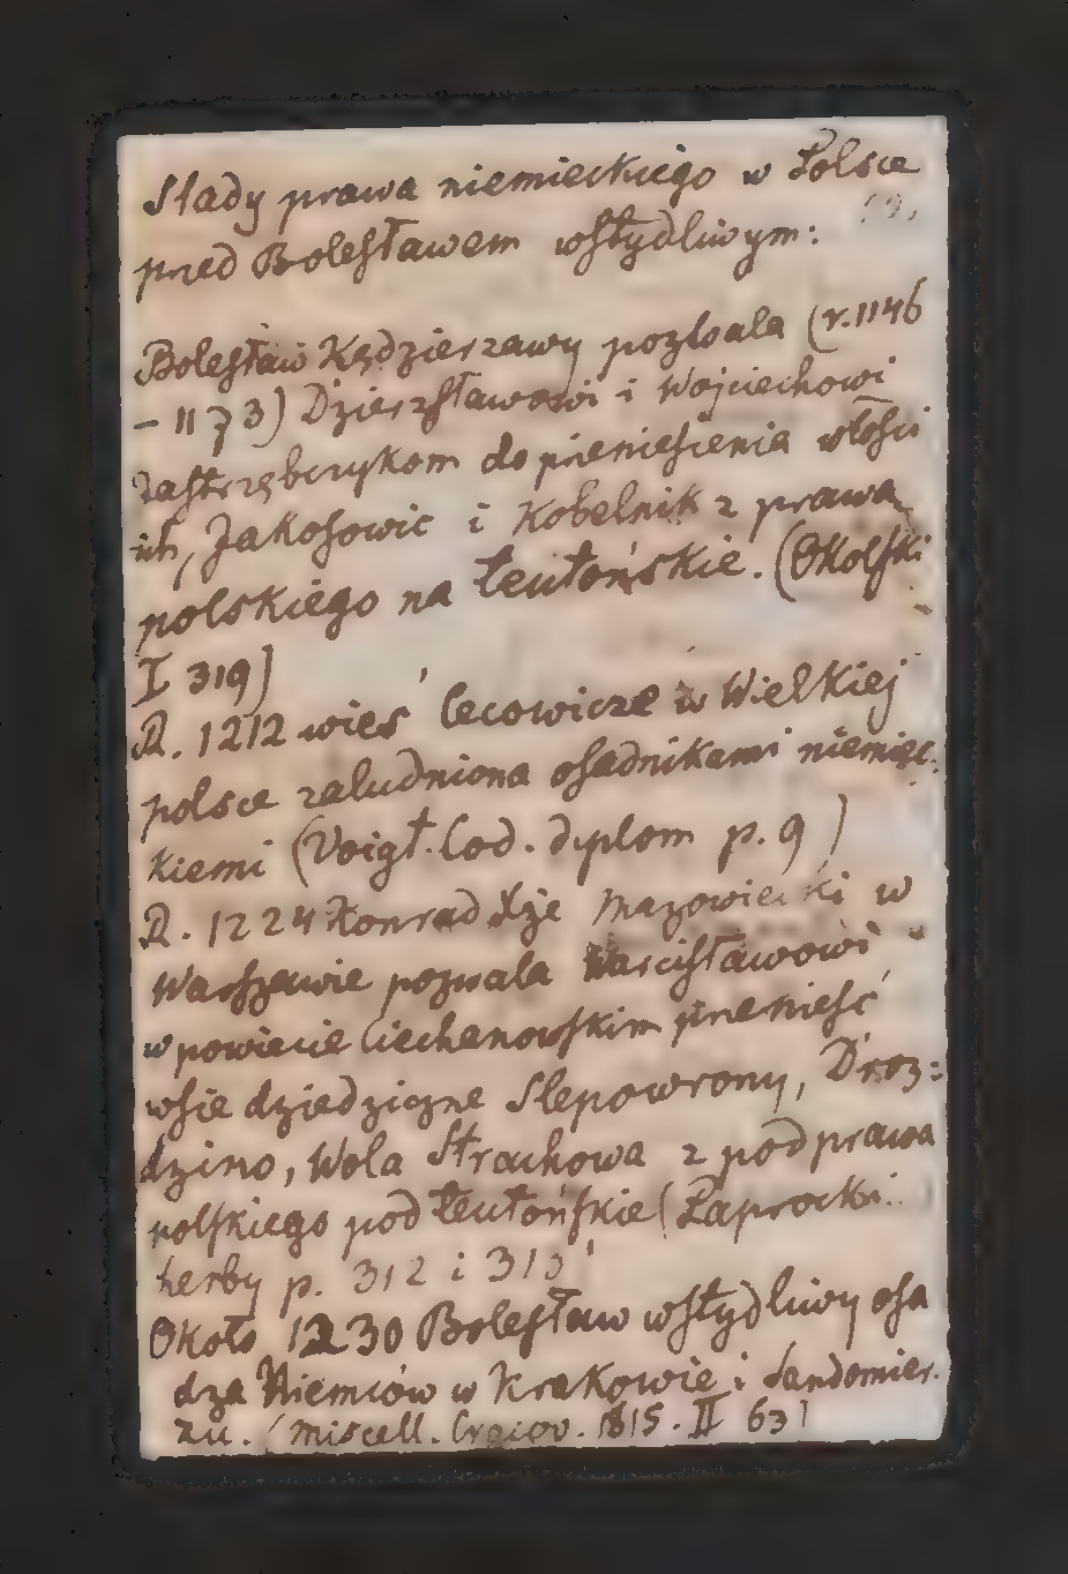 Slady prawa niemieckiego w Polsce
przed Bolesławem wstydliwym:
Bolesław Kędzierzawy pozwala (r. 1146
– 1173) Dzierzsławowi i Wojciechowi
Jastrzębczykom do przeniesienia włości
ich, Jakosowic i Kobelnik z prawa
polskiego na teutońskie. (Okolski
I 319)
R. 1212 wieś Cecowicze w Wielkiej
polsce zaludniona osadnikami niemiec:
kiemi (Voigt. Cod. dyplom p. 9)
R. 1224 Konrad Xże Mazowiecki w
Warszawie pozwala Warcisławowi
w powiecie Ciechanowskim przenieść
wsie dziedziczne Slepowrony, Droz:
dzino, Wola Strachowa z pod prawa
polskiego pod teutońskie (Paprocki
herby p. 312 i
Około 1230 Bolesław wstydliwy osa
dza Niemców w Krakowie i Sandomier.
zu. (Miscell. Cracov. 1815. II 63)